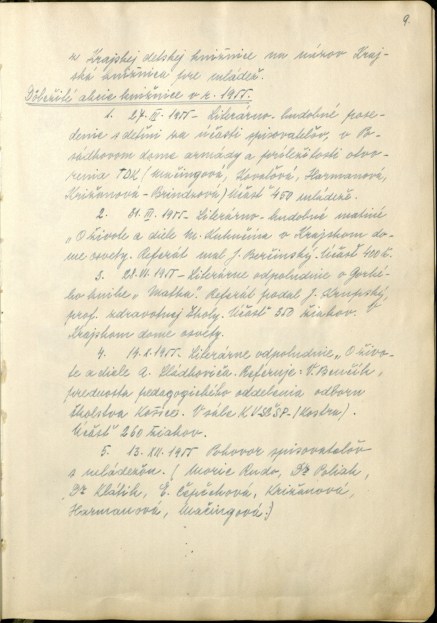 9.
z Krajskej detskej knižnice na názov Kraj-
ská knižnica pre mládež.
Dôležité akcie knižnice v r. 1955.
1. 27. III. 1955 - Literárno-hudobné pose-
denie s deťmi za účasti spisovateľov, v Po-
sádkovom dome armády z príležitosti otvo-
renia TDK (Mačingová, Kovaľová, Harmanová,
Križanová - Brindzová) Účasť 450 mládeže.
2. 31. III. 1955 - Literárno-hudobné matiné
o živote a diele M. Kukučína v Krajskom do-
me osvety. Referát mal J. Berčinský. Účasť 400 č.
3. 28. VI. 1955 - Literárne odpoludnie o Gorké-
ho knihe "Matka". Referát podal J. Krupský,
prof. zdravotnej školy. Účasť 350 žiakov. V
Krajskom dome osvety.
4. 14. X. 1955. Literárne odpoludnie "O živo-
te a diele A. Sládkoviča. Referuje: V. Benčík,
prednosta pedagogického oddelenia odboru
školstva Košice. V sále KV SČSP. (Kostra).
Účasť 260 žiakov.
5. 13. XII. 1955 Pohovor spisovateľov
s mládežou. (Moric Rudo, Dr Poliak,
Dr Klátik, E. Čepčeková, Križanová,
Harmanová, Mačingová.)